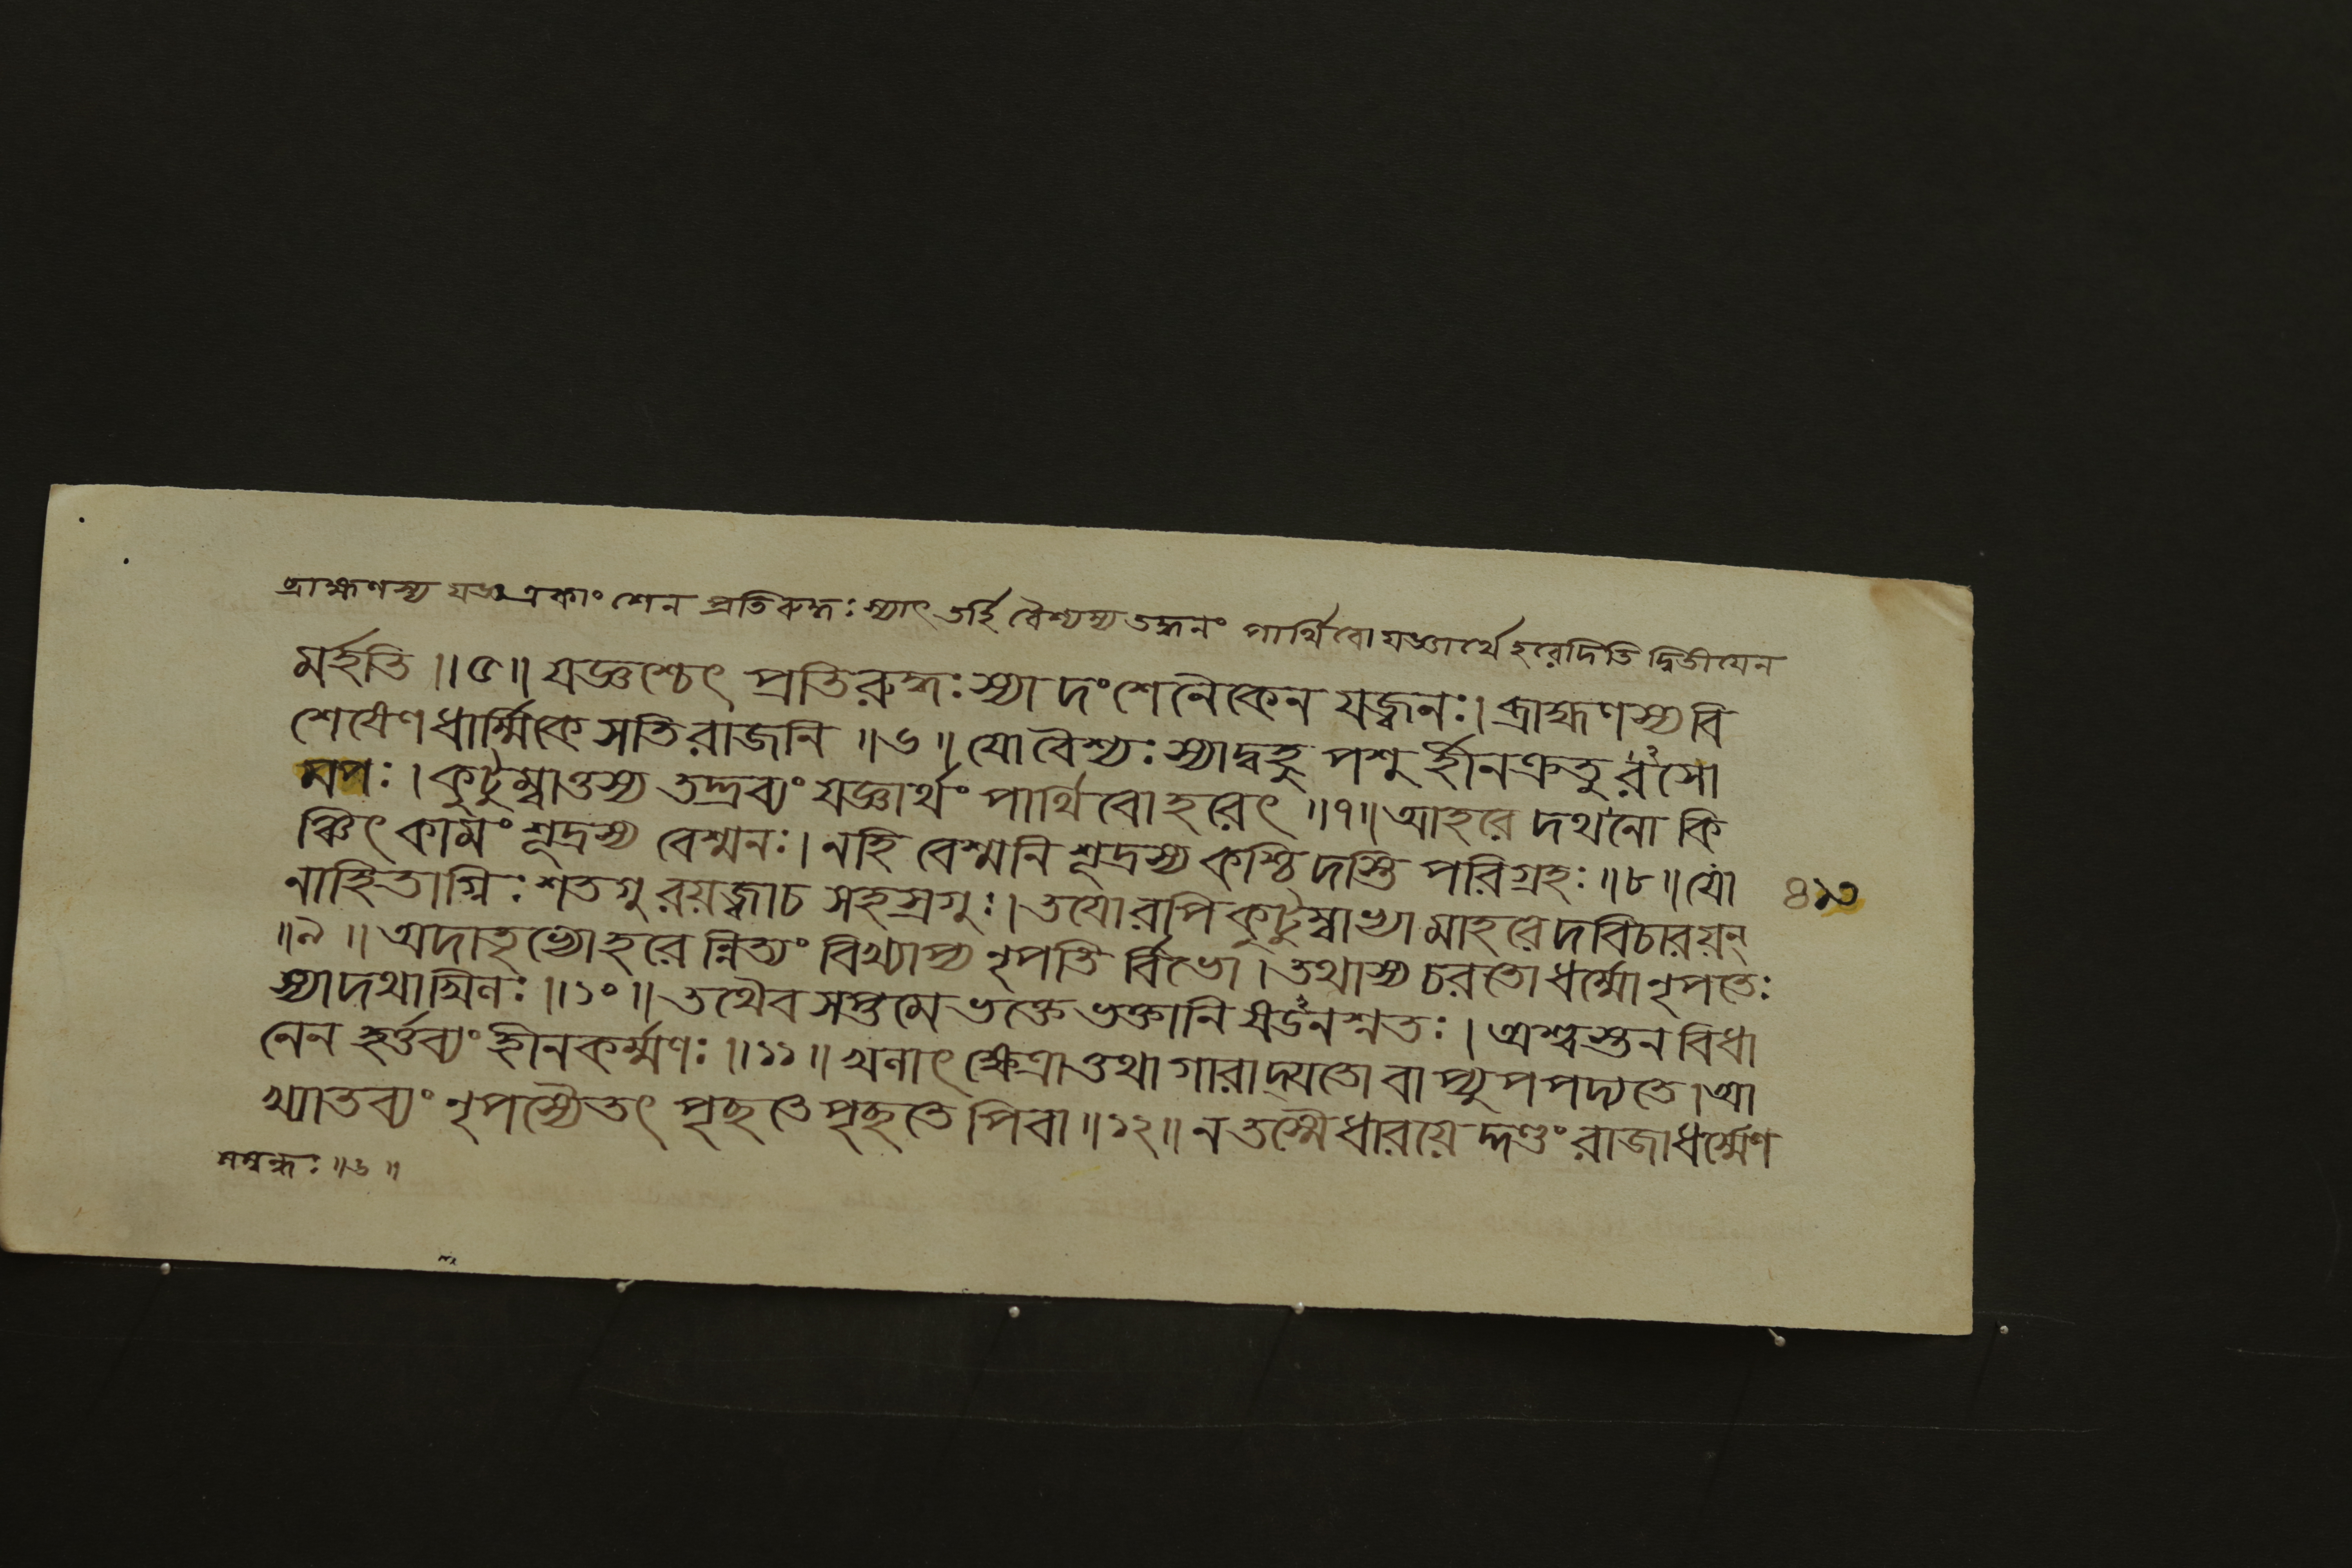 ব্রাহ্মণস্য যজ্ঞঃ একাংশেন প্রতিরুদ্ধঃ স্যাৎ তর্হি বৈশ্যস্য তদ্ধনং পার্থিবো যজ্ঞার্থে হরেদিতি দ্বিতীযেন
মর্হতি ॥৫॥ যজ্ঞশ্চেৎ প্রতিরুদ্ধঃ স্যাদংশেনৈকেন যজ্বনঃ। ব্রাহ্মণস্য বি
শেষেণ ধার্ম্মিকে সতি রাজনি ॥৬॥ যো বৈশ্যঃ স্যাদ্বহুপশুর্হীনক্রতুরসো
মপঃ। কুটুম্বাত্তস্য তদ্দ্রব্যং যজ্ঞার্থং পার্থিবো হরেৎ ॥৭॥ আহরেদথ নো কি
ঞ্চিৎ কামং শূদ্রস্য বেশ্মনঃ। নহি বেশ্মনি শূদ্রস্য কশ্চিদস্তি পরিগ্রহঃ ॥৮॥ যো
নাহিতাগ্নিঃ শতগুরয়জ্বা চ সহস্রগুঃ। তযোরপি কুটুম্বাভ্যামাহরেদবিচারয়ন্
৪১৩
॥৯॥ অদাতৃভ্যো হরেন্নিত্যং বিখ্যাপ্য নৃপতির্বিভো। তথাস্য চরতো ধর্ম্মো নৃপতেঃ
স্যাদথাখিনঃ ॥১০॥ তথৈব সপ্তমে ভক্তে ভক্তানি ষডনশ্নতঃ। অশ্বস্তনবিধা
নেন হর্ত্তব্যং হীনকর্ম্মণঃ ॥১১॥ খলাৎ ক্ষেত্রাত্তথাগারাদ্যতো বাপ্যুপপদ্যতে। আ
খ্যাতব্যং নৃপস্যৈতৎ পৃছতে পৃছতেপি বা ॥১২॥ ন তস্মৈ ধারয়েদ্দণ্ডং রাজা ধর্ম্মেণ
সম্বন্ধঃ ॥৬॥